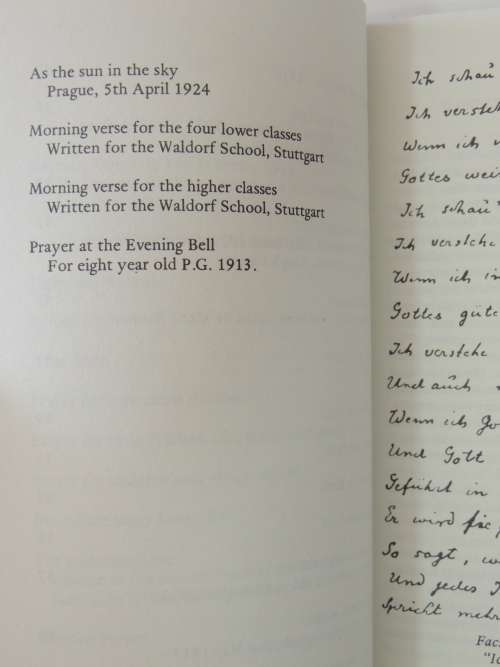 As the sun in the sky
Prague, 5th April 1924
Morning verse for the four lower classes
Written for the Waldorf School, Stuttgart
Morning verse for the higher classes
Written for the Waldorf School, Stuttgart
Prayer at the Evening Bell
For eight year old P.G. 1913.
Ich schau'
Ich
Wenn ich
Gottes
Ich schau'
Ich verstehe
Wenn ich
Gottes
Ich verstehe
Und auch
Wenn ich
Und Gott
Gefühlt in
Er wird
So sagt,
Und jedes
Spricht